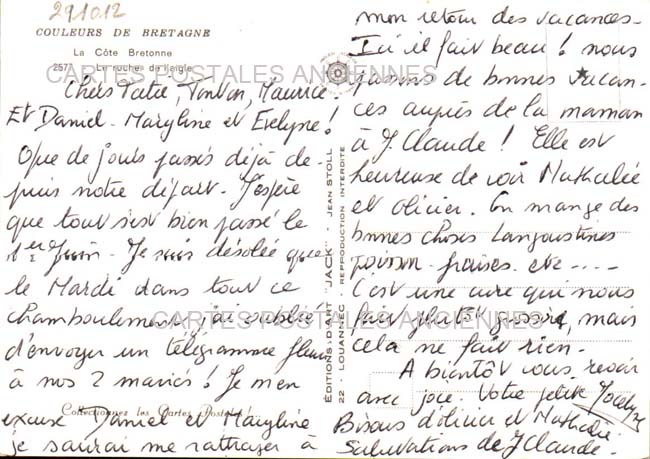 29.10.12
COULEURS DE BRETAGNE
La Côte Bretonne
257 Le rocher de l'aigle
CARTES POSTALES ANCIENNES
Chers Tatie, Tonton, Maurice
Et Daniel - Maryline et Evelyne!
Que de jours passés déjà de-
puis notre départ. J'espère
que tout s'est bien passé le
1er Juin. Je suis désolée que
le Mardi dans tout ce
chamboulement, j'ai oublié
d'envoyer un télégramme fleuri
à nos 2 mariés! Je m'en
excuse Daniel et Maryline
je saurai me rattraper à
Collectionnez les Cartes Postales
ÉDITIONS D'ART "JACK" - JEAN STOLL
22 - LOUANNEC - REPRODUCTION INTERDITE
mon retour des vacances.
Ici il fait beau! nous
passons de bonnes vacan-
ces auprès de la maman
à J. Claude! Elle est
heureuse de voir Nathalie
et Olivier. On mange des
bonnes choses Langoustines
poisson - fraises - etc ----
C'est une cure qui nous
fait plutôt grossir, mais
cela ne fait rien.
A bientôt vous revoir
avec joie. Votre petite Jocelyne
Bisous d'Olivier et Nathalie
Salutations de J Claude.
CARTES POSTALES ANCIENNES